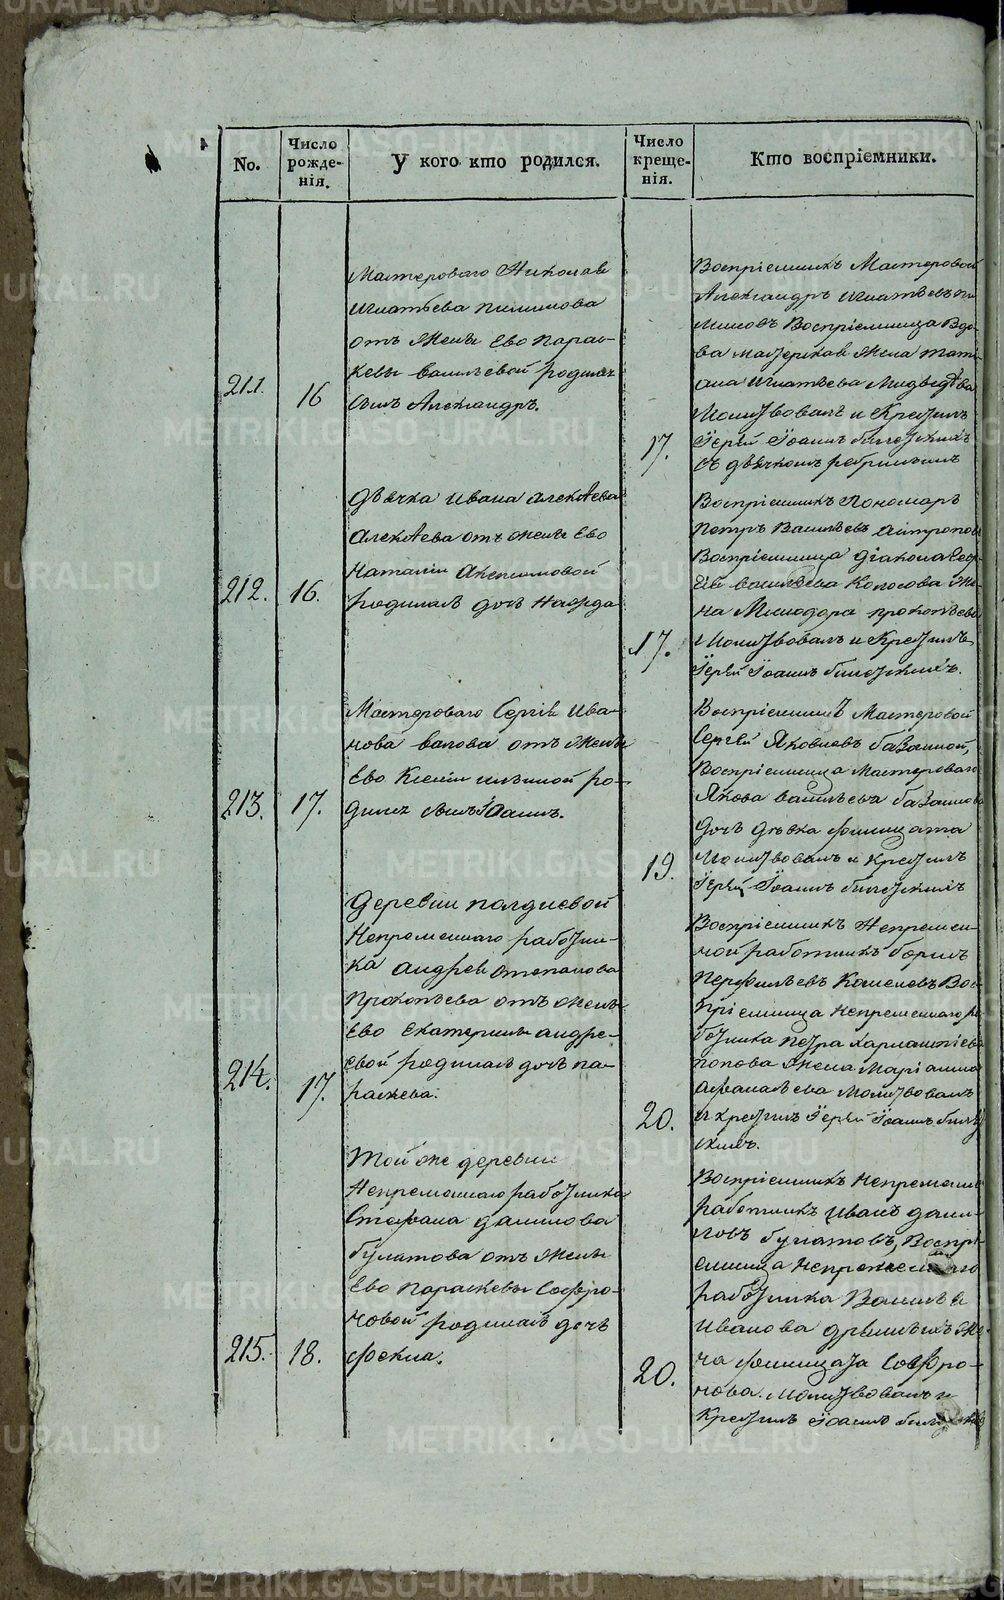 No.
Число рожде-нія.
У кого кто родился.
Число креще-нія.
Кто воспріемники.
211.
16
Мастероваго Николая
Игнатьева Пилимова
отъ жены Ево Парас-
кевы Васильевой родился
сынъ Александръ.
17.
Воспріемникъ Мастеровой
Александръ Игнатьевъ Пи
лимовъ Воспріемница Вдо-
ва мастерская жена Тати-
ана Игнатьева Медведева
Молитвовалъ и Крестилъ
Іерей Іоаннъ
съ дьячкомъ
212.
16.
Дьячка Ивана Алексѣева
Алексѣева отъ жены Ево
Наталіи
родилась дочь
17.
Воспріемникъ Пономарь
Петръ Васильевъ
Воспріемница діакона Сер-
гѣя Васильева Колосова же-
на Прокопьева
Молитвовалъ и Крестилъ
Іерей Іоаннъ
213.
17.
Мастероваго Сергѣя Ива-
нова Валова отъ жены
Ево Ксеніи Ильиной ро-
дился сынъ Іоаннъ.
19.
Воспріемникъ Мастеровой
Сергей Яковлевъ
Воспріемница Мастероваго
Якова Васильева
дочь дѣвка Филицата
Молитвовалъ и Крестилъ
Іерей Іоаннъ
214.
17.
Деревни Полдневой
Непременнаго работни-
ка Андрея Степанова
Прокопьева отъ жены
Ево Екатерины Андре-
евой родилась дочь Па-
раскева.
20.
Воспріемникъ Непремен-
ной работникъ Борисъ
Перфильевъ Кошелевъ Вос-
пріемница Непременнаго ра
ботника Петра Харлампіева
Попова жена Маріамна
Афанасьева Молитвовалъ
и крестилъ Іерей Іоаннъ
215.
18.
Той же деревни
Непременнаго работника
Стефана Данилова
Булатова отъ жены
Ево Параскевы Софро-
новой родилась дочь
Фекла.
20.
Воспріемникъ Непременной
работникъ Иванъ Дани-
ловъ Булатовъ, Воспрі-
емница Непременнаго
работника Василья
Иванова же-
на Филицата Софро-
нова. Молитвовалъ и
Крестилъ Іоаннъ
METRIKI.GASO-URAL.RU